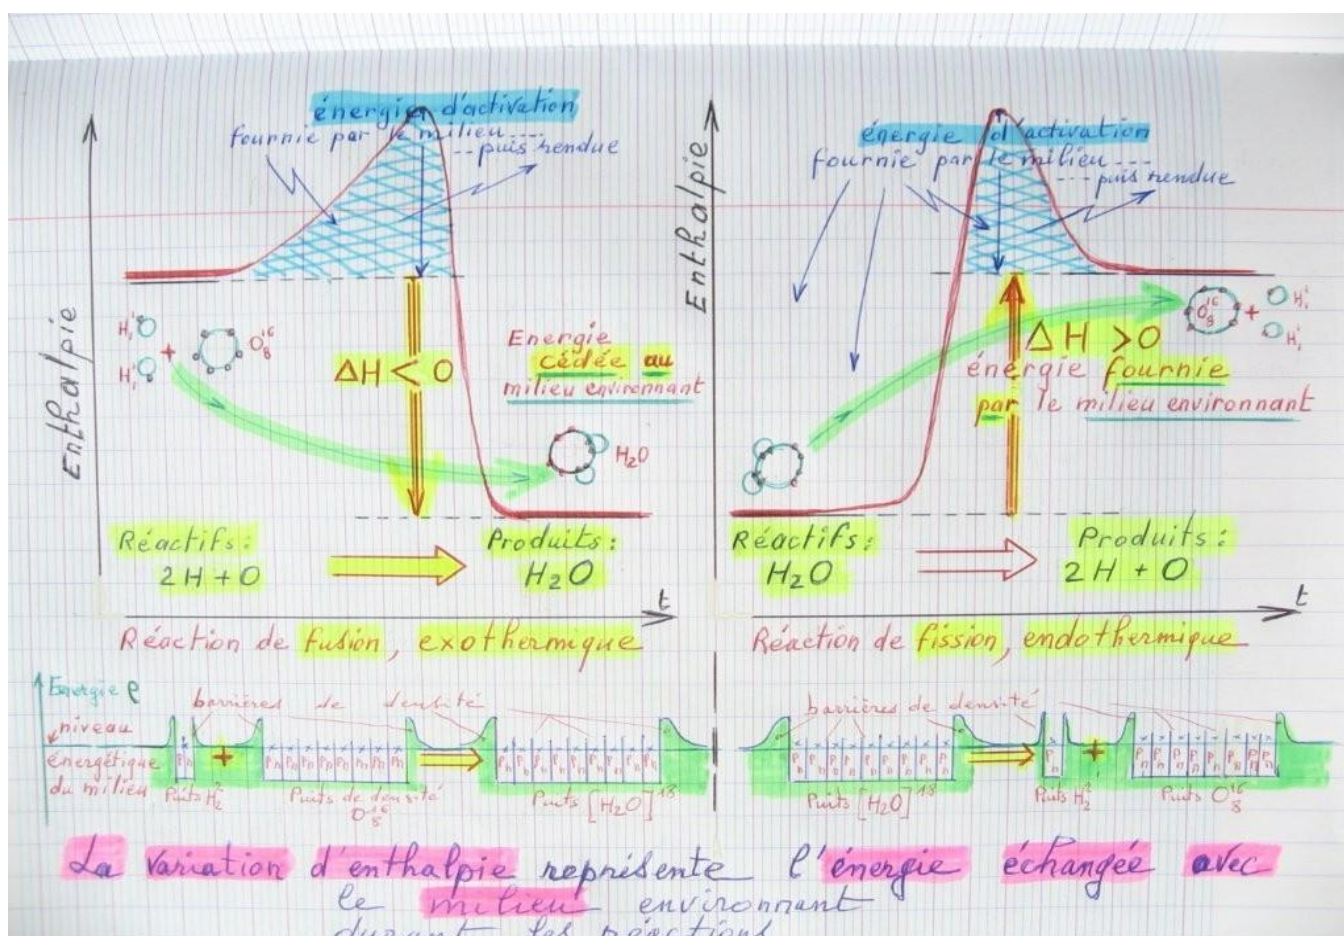 énergie d'activation
fournie par le milieu ----
-- puis rendue
Enthalpie
H¹₁
H¹₁
+
O¹⁶₈
ΔH < 0
Energie
cédée au
milieu environnant
H₂O
Réactifs :
2H + O
Produits :
H₂O
t
Réaction de fusion, exothermique
énergie d'activation
fournie par le milieu ---
--- puis rendue
Enthalpie
O¹⁶₈
+
H¹₁
H¹₁
ΔH > 0
énergie fournie
par le milieu environnant
Réactifs :
H₂O
Produits :
2H + O
t
Réaction de fission, endothermique
Energie ρ
niveau
énergétique
du milieu
barrières de densité
+
Puits H²₂
Puits de densité
O¹⁶₈
Puits [H₂O]¹⁸
barrières de densité
Puits [H₂O]¹⁸
Puits H²₂
+
Puits O¹⁶₈
La variation d'enthalpie représente l'énergie échangée avec
le milieu environnant
durant les réactions